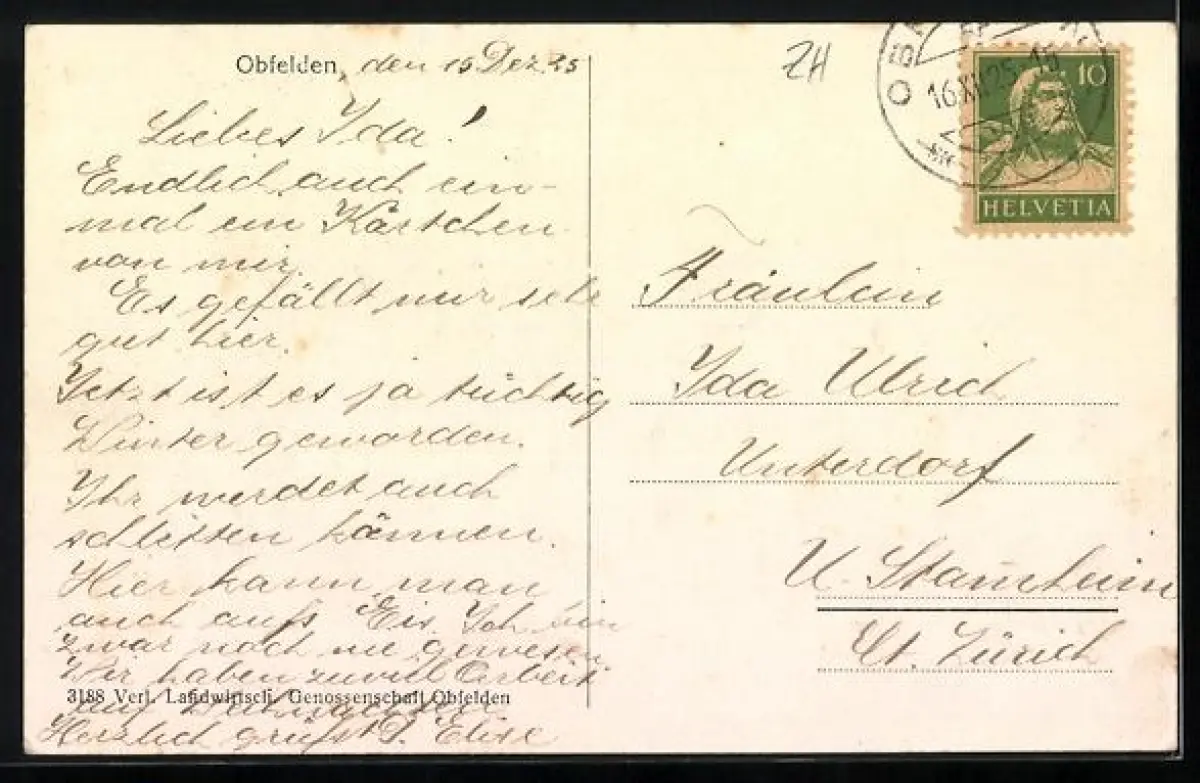 Obfelden, den 15 Dez. 25
Liebes Ida!
Endlich auch ein-
mal ein Kärtchen
von mir.
Es gefällt mir sehr
gut hier.
Jetzt ist es ja tüchtig
Winter geworden.
Ihr werdet auch
schlitten können.
Hier kann man
auch aufs Eis. Ich bin
zwar noch nie gewesen
Wir haben zuviel Arbeit
3188 Verl. Landwirtsch. Genossenschaft Obfelden
auf
Herzlich grüßt D. Elise
ZH
16.XII.25-15
10
HELVETIA
Fräulein
Ida Ulrich
Unterdorf
U. Stam̄heim
Ct. Zürich